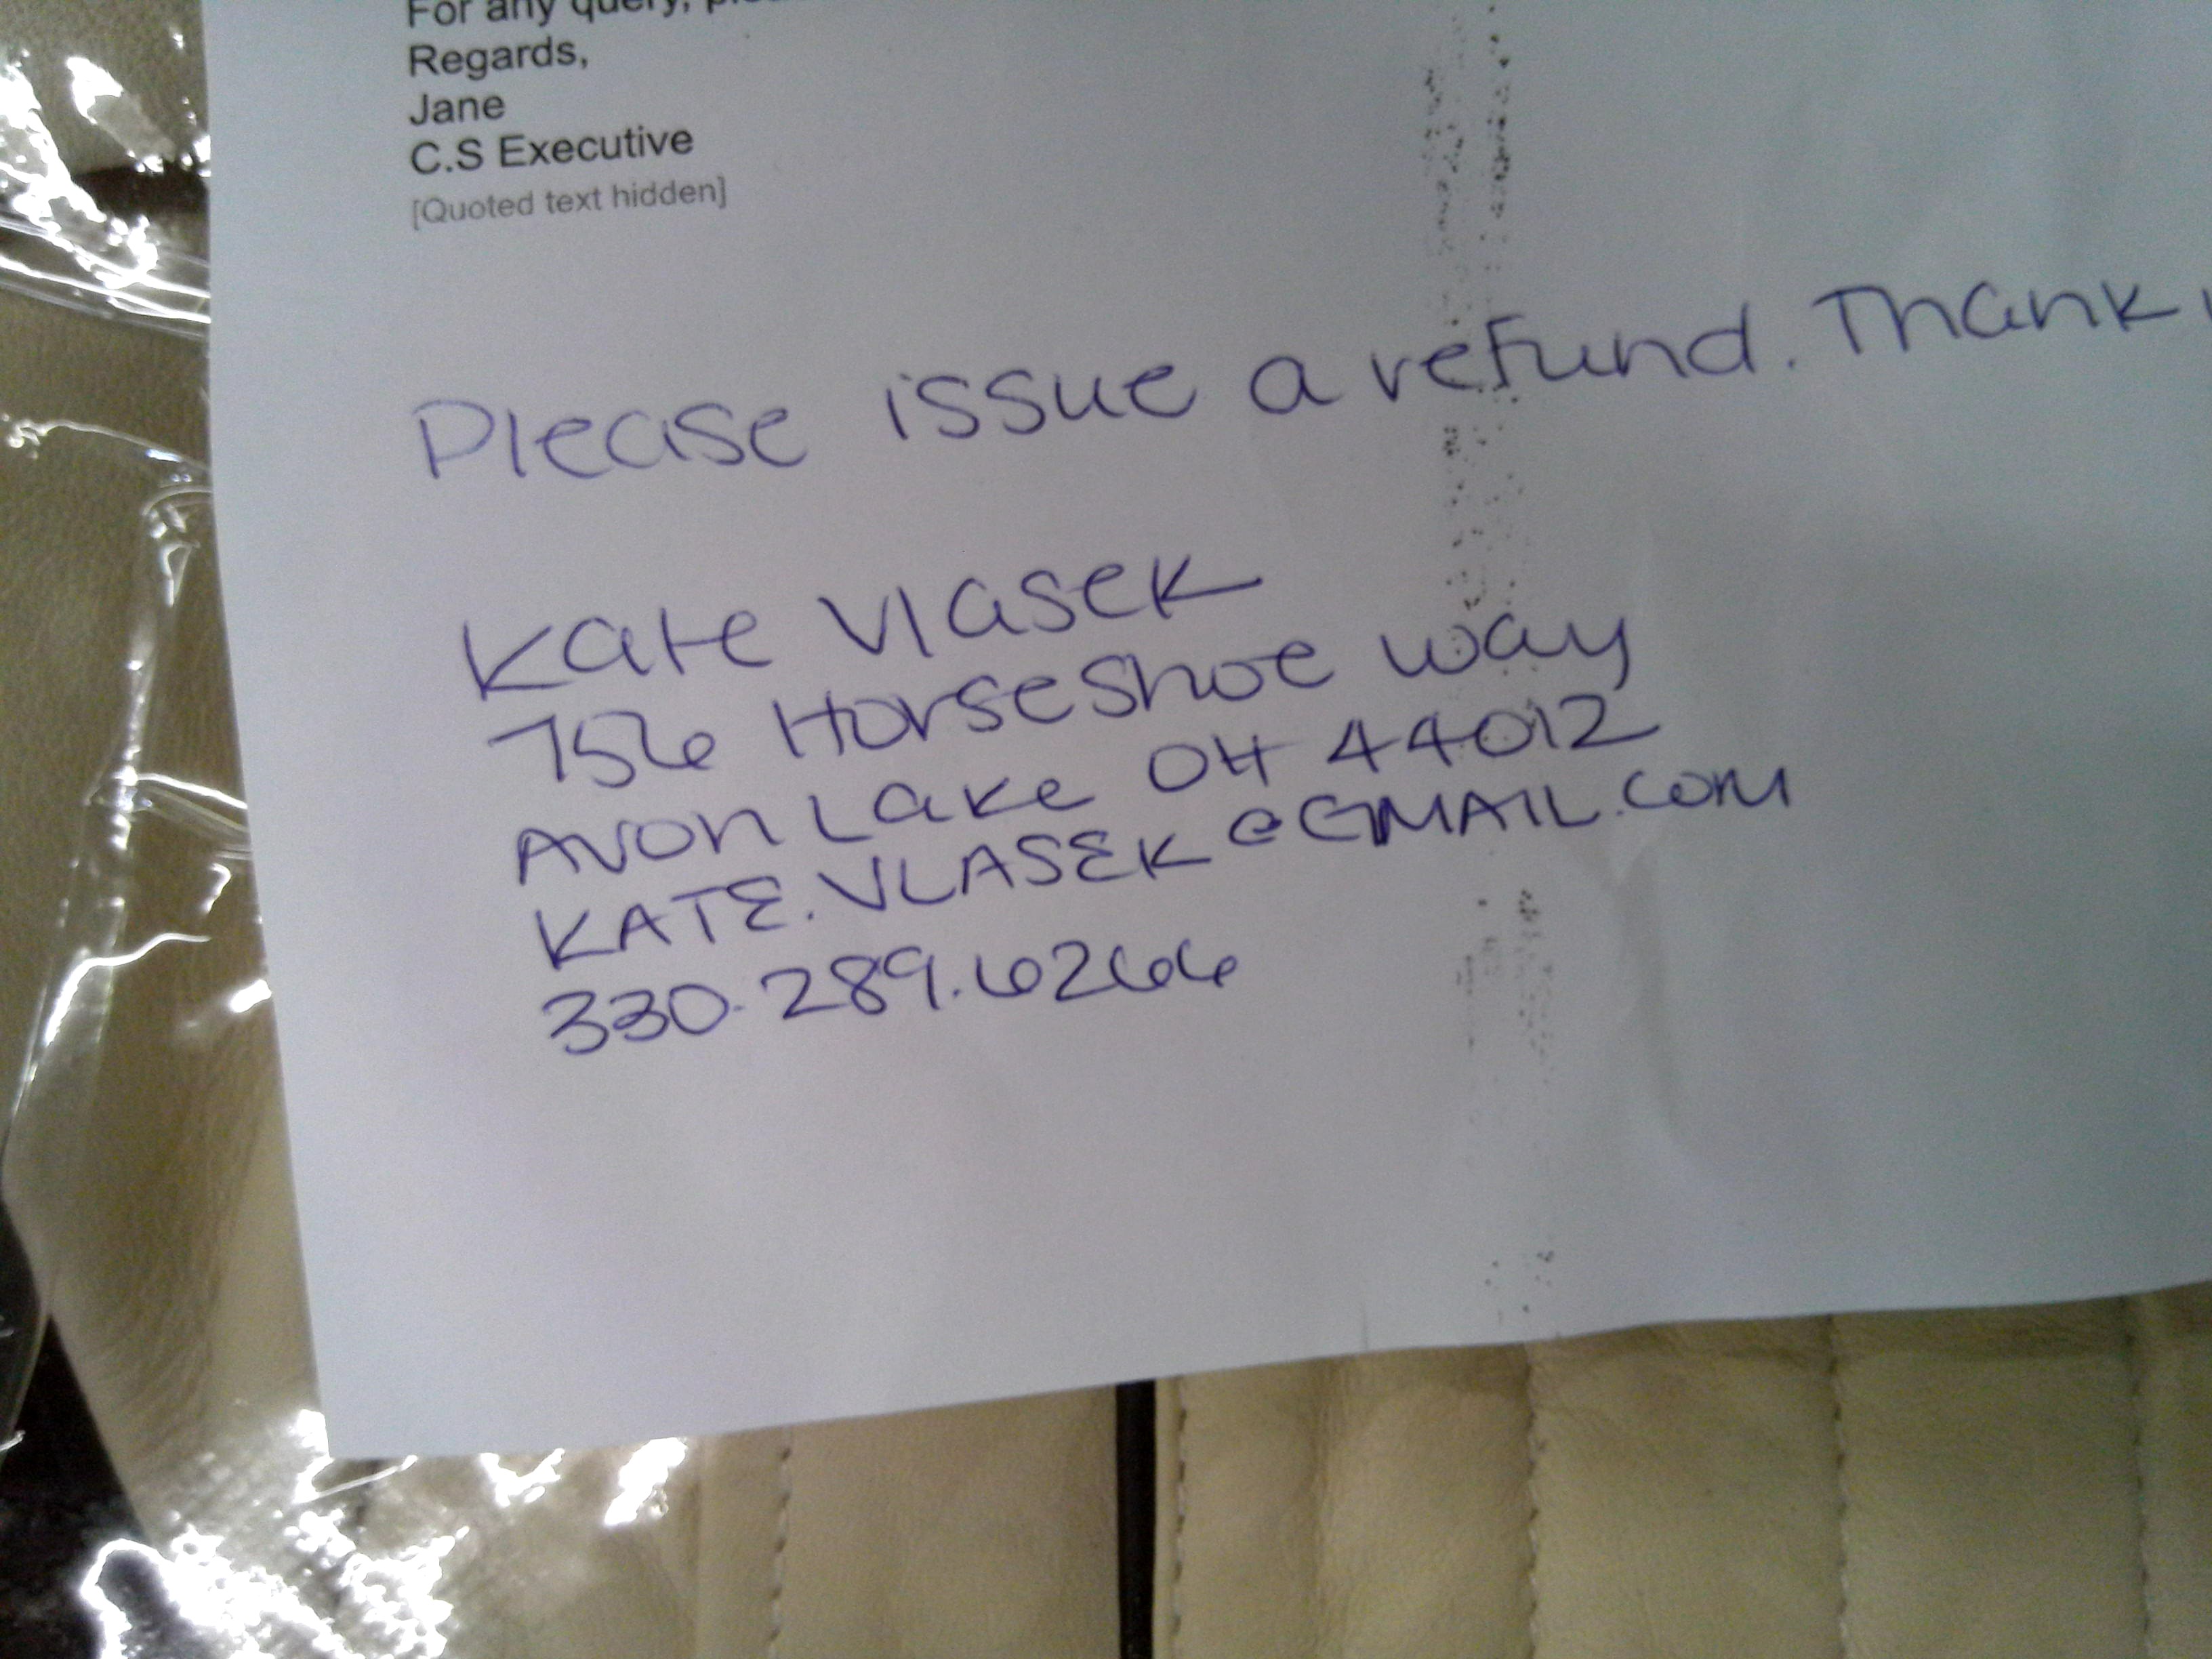 For any query,
Regards,
Jane
C.S Executive
[Quoted text hidden]
Please issue a refund. Thank
Kate Vlasek
756 Horseshoe way
Avon Lake OH 44012
KATE.VLASEK@GMAIL.COM
330.289.6266